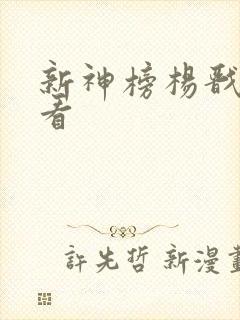 新神榜楊戩
看
許先哲 新漫畫